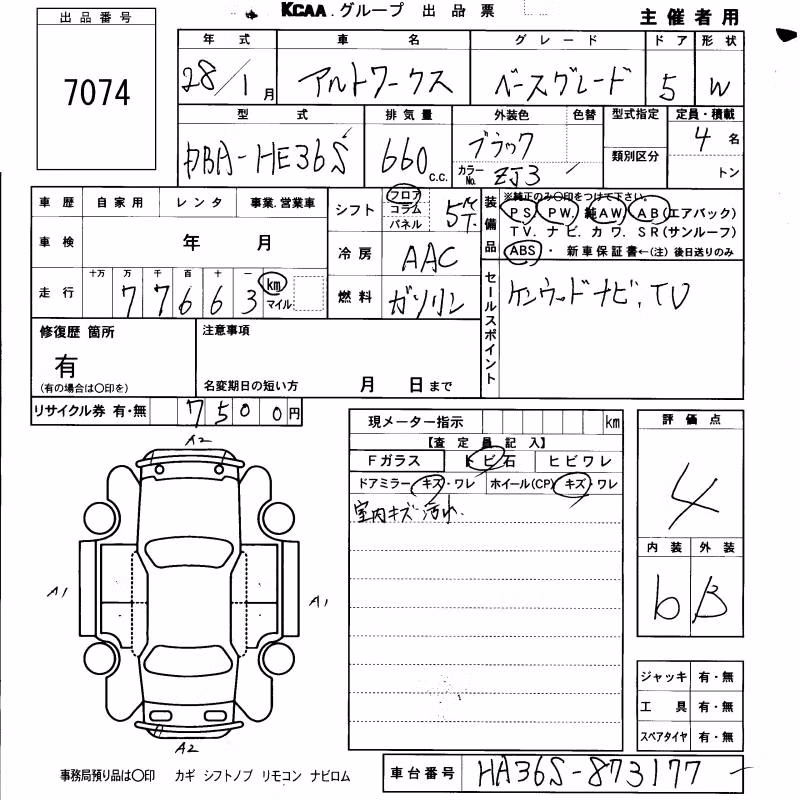 KCAA.グループ 出品票
主催者用
出品番号
7074
年式 車名 グレード ドア 形状
28/1月 アルトワークス ベースグレード 5 W
型式 排気量 外装色 色替 型式指定 定員・積載
DBA-HE36S 660c.c. ブラック 4名
カラーNo. ZJ3 類別区分 トン
車歴 自家用 レンタ 事業.営業車
車検 年 月
走行 十万 万 千 百 十 一
77663 km マイル
シフト フロア コラム パネル 5MT.
冷房 AAC
燃料 ガソリン
装備品
※純正のみ〇印をつけて下さい。
PS. PW. 純AW. AB(エアバック)
TV. ナビ. カワ. SR(サンルーフ)
ABS ・ 新車保証書←(注) 後日送りのみ
セールスポイント
ケンウッドナビ、TV
修復歴 箇所
有
(有の場合は〇印を)
注意事項
名変期日の短い方 月 日まで
リサイクル券 有・無 7500円
現メーター指示 km
【査定員記入】
Fガラス トビ石 ヒビワレ
ドアミラー キズ・ワレ ホイール(CP) キズ・ワレ
室内キズ 汚れ.
評価点
4
内装 外装
b B
A2
A1
A1
A2
ジャッキ 有・無
工具 有・無
スペアタイヤ 有・無
事務局預り品は〇印 カギ シフトノブ リモコン ナビロム
車台番号 HA36S-873177